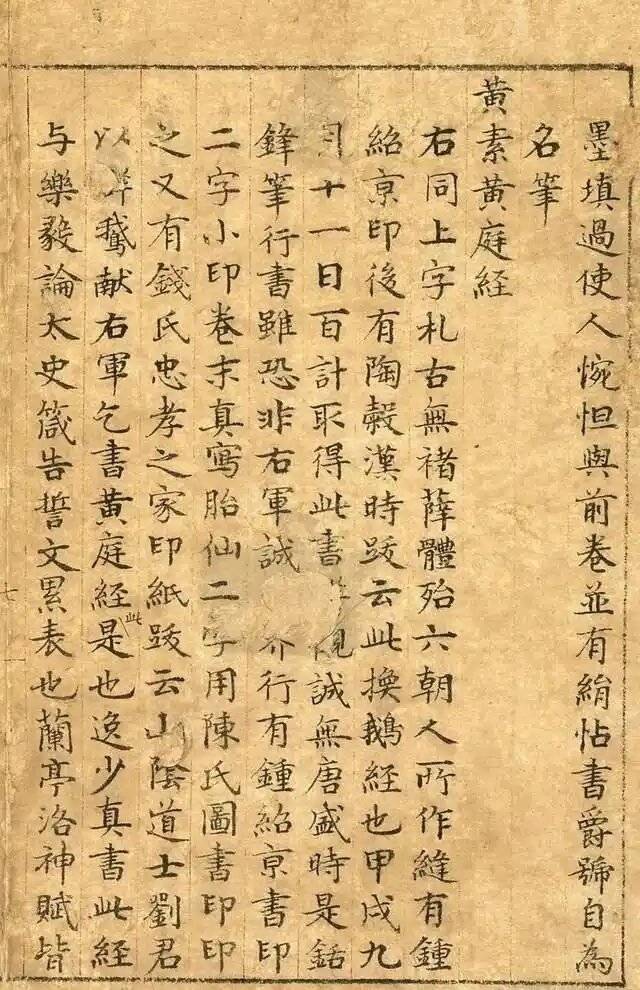 墨填過使人惋怛與前卷並有絹帖書爵號自為
名筆
黄素黄庭経
右同上字札古無褚薛體殆六朝人所作縫有鍾
紹亰印後有陶穀漢時跋云此換鵝経也甲戌九
月十一日百計取得此書誠無唐盛時是銛
鋒筆行書雖恐非右軍誠行有鍾紹亰書印
二字小印卷末真寫胎仙二字用陳氏圖書印印
之又有錢氏忠孝之家印紙跋云山陰道士劉君
以群鵝献右軍乞書黄庭経此是也逸少真書此経
与樂毅論太史箴告誓文累表也蘭亭洛神賦皆
七